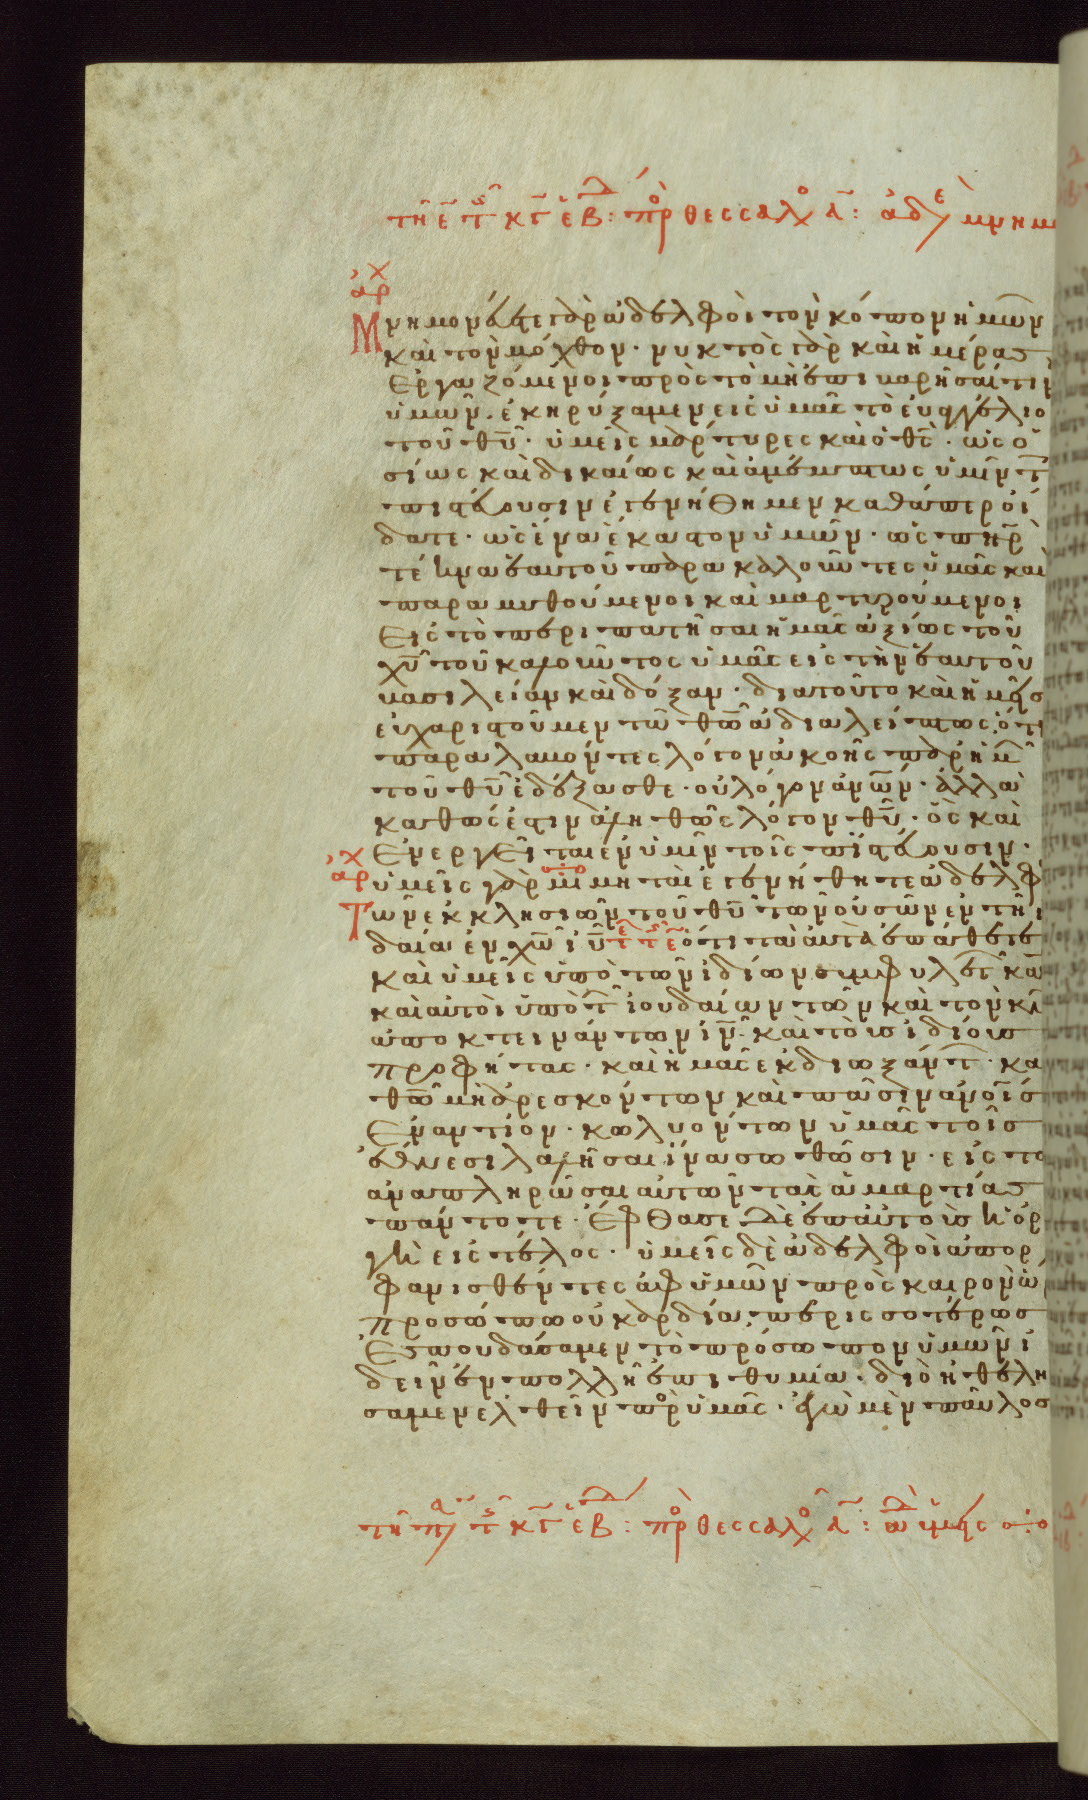 τῆ ε τῆς κγ ἑβδ: πρὸ θεσσαλο α: ἀδε
ἀρχ
Μνημονεύετε γὰρ ἀδελφοὶ τὸν κόπον ἡμῶν
καὶ τὸν μόχθον· νυκτὸς γὰρ καὶ ἡμέρας
ἐργαζόμενοι πρὸς τὸ μὴ ἐπιβαρῆσαί τιν
ὑμῶν· ἐκηρύξαμεν εἰς ὑμᾶς τὸ εὐαγγέλιο
τοῦ θυ· ὑμεῖς μάρτυρες καὶ ὁ θς· ὡς ὁ
σίως καὶ δικαίως καὶ ἀμέμπτως ὑμῖν τ
πιστεύουσιν ἐγενήθημεν καθάπερ οἴ
δατε· ὡς ἕνα ἕκαστον ὑμῶν· ὡς πηρ
τέκνα ἑαυτοῦ παρακαλοῦντες ὑμᾶς καὶ
παραμυθούμενοι καὶ μαρτυρούμενοι
εἰς τὸ περιπατῆσαι ἡμᾶς ἀξίως τοῦ
χυ τοῦ καλοῦντος ὑμᾶς εἰς τὴν ἑαυτοῦ
βασιλείαν καὶ δόξαν· διατοῦτο καὶ ἡμεῖς
εὐχαριστοῦμεν τῶ θω ἀδιαλείπτως· ὅτι
παραλαβόντες λόγον ἀκοῆς παρ ἡμ
τοῦ θυ ἐδέξασθε· οὐ λόγον ἀνων· ἀλλὰ
καθὼς ἐστὶν ἀληθῶς λόγον θυ· ὃς καὶ
ἐνεργεῖται ἐν ὑμῖν τοῖς πιστεύουσιν·
ἀρχ ὑμεῖς γὰρ μιμηταὶ ἐγενήθητε ἀδελφ
Τῶν ἐκκλησιῶν τοῦ θυ τῶν οὐσῶν ἐν τῆ ι
δαία ἐν χω ιυ ὅτι τὰ αὐτὰ ἐπάθετε
καὶ ὑμεῖς ὑπὸ τῶν ἰδίων συμφυλετ κα
καὶ αὐτοὶ ὑπὸ τ ἰουδαίων τῶν καὶ τὸν κν
ἀποκτεινάντων ιν· καὶ τοὺς ἰδίους
προφήτας· καὶ ἡμᾶς ἐκδιωξάντ· κα
θω μὴ ἀρεσκόντων καὶ πᾶσιν ἀνοις
ἐναντίον· κωλυόντων ὑμᾶς τοῖς
ἔθνεσι λαλῆσαι ἵνα σωθῶσιν· εἰς τὸ
ἀναπληρῶσαι αὐτῶν τὰς ἁμαρτίας
πάντοτε· Ἔφθασε δὲ ἐπ αὐτοὺς ἡ ὀρ
γὴ εἰς τέλος· ὑμεῖς δὲ ἀδελφοὶ ἀπορ
φανισθέντες ἀφ ὑμῶν πρὸς καιρὸν ὥ
προσώπω οὐ καρδία· περισσοτέρως
ἐσπουδάσαμεν τὸ πρόσωπον ὑμῶν ἰ
δεῖν ἐν πολλῆ ἐπιθυμία· διὸ ἠθελή
σαμεν ἐλθεῖν πρὸ ὑμᾶς· ἐγὼ μὲν παῦλος
τῆ πα τῆς κγ ἑβδ: πρὸ θεσσαλο α: ἀδ ὑμεῖς